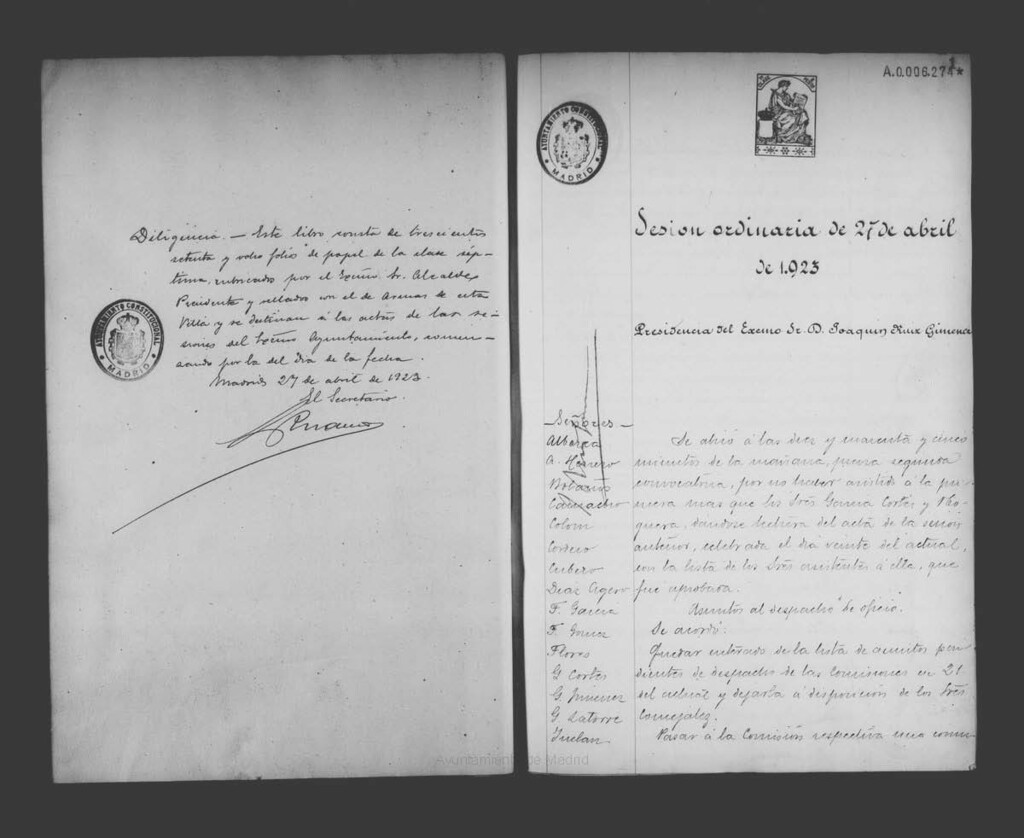 Diligencia. — Este libro consta de trescientos
setenta y ocho folios de papel de la clase sép-
tima, rubricados por el Excmo. Sr. Alcalde
Presidente y sellados con el de Armas de esta
Villa y se destinan á las actas de las se-
siones del Excmo Ayuntamiento, comen-
zando por la del dia de la fecha.
Madrid 27 de abril de 1923.
El Secretario.
AYUNTAMIENTO CONSTITUCIONAL
MADRID
A.0.006.274*
AYUNTAMIENTO CONSTITUCIONAL
MADRID
Sesion ordinaria de 27 de abril
de 1.923
Presidencia del Excmo Sr. D. Joaquin Ruiz Gimenez
— Señores —
Alberca
A. Herrero
Bolaños
Camacho
Colom
Cordero
Cubero
Diaz Agero
F. Garcia
F.
Flores
G. Cortés
G. Jimenez
G. Latorre
Se abrió á las diez y cuarenta y cinco
minutos de la mañana, para segunda
convocatoria, por no haber asistido á la pri-
mera mas que los Sres Garcia Cortés y No-
guera, dándose lectura del acta de la sesion
anterior, celebrada el dia veinte del actual,
con la lista de los Sres asistentes á ella, que
fué aprobada.
Asuntos al despacho de oficio.
Se acordó:
Quedar enterado de la lista de asuntos pen-
dientes de despacho de las Comisiones en 21
del actual y dejarla á disposicion de los Sres
Concejales.
Pasar á la Comisión respectiva una comu-
Ayuntamiento de Madrid